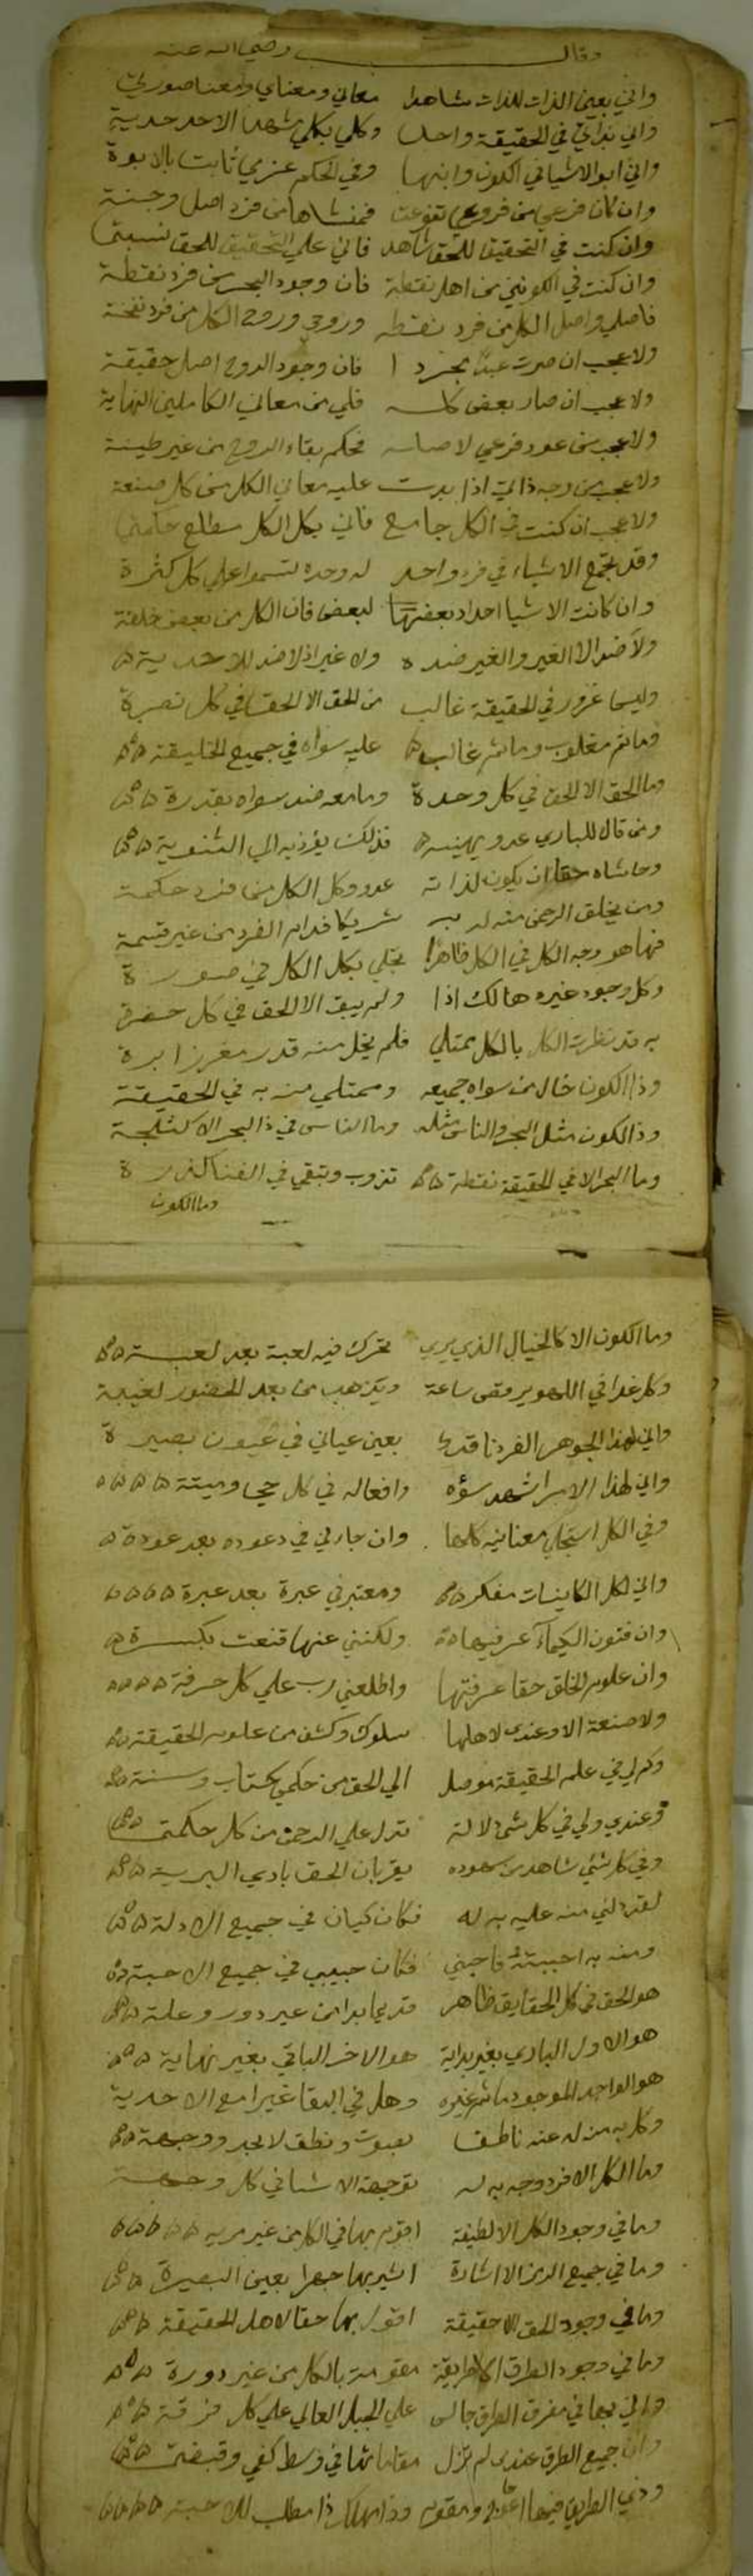 وقال رضي الله عنه
واني بعين الذات للذات شاهدا معاني ومعناي ومعنا صورتي
واني بذاتي في الحقيقة واحدا وكلي بكلي شهد الاحدية
واني ابو الاشيا في الكون وابنها وفي الحكم عزمي ثابت بالابوة
وان كان فرعي من فروعي تفرعت فمنشاها من فرد اصل وجنة
وان كنت في التحقيق للحق شاهد فاني علي التحقيق للحق نسبتي
وان كنت في الكونين من اهل نقطة فان وجود البحر من فرد نقطة
فاصلي واصل الكل من فرد نقطه وروحي وروح الكل من فرد نفخة
ولا عجب ان صرت عبدا مجردا فان وجود الروح اصل حقيقة
ولا عجب ان صار بعضي كله فلي من معاني الكاملين النهاية
ولا عجب من عود فرعي لاصله فحكم بقاء الروح من غير طينة
ولا عجب من وجه ذاتي اذا بدت عليه معاني الكل من كل صنعة
ولا عجب ان كنت في الكل جامع فاني بكل الكل مطلع حكمتي
وقد تجمع الاشياء في فرد واحد له وحده تسموا علي كل كثرة
وان كانت الاشيا احداد بعضها لبعض فان الكل من بعض خلقة
ولا ضد الا الغير والغير ضده ولا غير اذ لا ضد للاحدية
وليس غرور في الحقيقة غالب من الحق الا الحق في كل نصرة
وما ثم مغلوب وما ثم غالب عليه سواه في جميع الخليقة
وما الحق الا الحق في كل وحدة وما معه ضد سواه بقدرة
ومن قال للباري عدو يهينه فذلك يؤذيه الي الثنوية
وحاشاه حقا ان يكون لذاته عدو وكل الكل من فرد حكمة
ومن يخلق الرحمن منه له به شريكا فدام الفرد من غير قسمة
فها هو وجه الكل في الكل ظاهرا تجلي بكل الكل في صورة
وكل وجود غيره هالك اذا ولم يبق الا الحق في كل حضرة
به قد نظرت الكل بالكل ممتلي فلم يخل منه قدر مغرز ابرة
وذا الكون خال من سواه جميعه وممتلي منه به في الحقيقة
وذا الكون مثل البحر والناس مثله وما الناس في ذا البحر الا كثلجة
وما البحر الا في الحقيقة نقطة تذوب وتبقي في الفنا كذرة
وما الكون
وما الكون الا كالخيال الذي يري تحرك فيه لعبة بعد لعبة
وكل غدا في اللهو يرقص ساعة ويذهب من بعد الحضور لغيبة
واني لهذا الجوهر الفرد ناقدا بعين عياني في عيون بصيرة
واني لهذا الامر اشهد سره وافعاله في كل حي وميتة
وفي الكل استجلي معانيه كلها وان جاد لي في دعوده بعد عودة
واني لكل الكاينات مفكر ومعتبر في عبرة بعد عبرة
وان فنون الكيمآء عرفتها ولكنني عنها قنعت بكسرة
وان علوم الخلق حقا عرفتها واطلعني رب علي كل حرفة
ولا صنعة الا وعندي لاهلها سلوك وكشف من علوم الحقيقة
وكم لي في علم الحقيقة موصل الي الحق من حكمي بكتاب وسنة
وعندي ولي في كل شئ دلالة تدل علي الرحمن من كل حكمتي
وفي كل شئ شاهد من شهوده يقر بان الحق باري البرية
لقد دلني منه عليه به له فكان كيان في جميع الادلة
ومنه به احببته فاحبني فكان حبيبي في جميع الاحبة
هو الحق في كل الحقايق ظاهر قديما بدا من غير دور وعلة
هو الاول الباري بغير بداية هو الاخر الباقي بغير نهاية
هو الواحد الموجود ما ثم غيره وهل في البقا غيرا مع الاحدية
وكل به منه له عنه ناطقا بصوت ونطق لا بحد ووجهة
وما الكل الا فرد وجه به له توجهة الاشيا في كل وجهة
وما في وجود الكل الا لطيفة اقوم بها في الكل من غير مريه
وما في جميع الرمز الا اشارة اشير بها جهرا بعين البصيرة
وما في وجود الحق الا حقيقة اقول بها حقا لاهل الحقيقة
وما في وجود الطرق الا طريقة مقومة بالكل من غير دورة
واني بها في مفرق الطرق جالس علي الجبل العالي علي كل فرقة
وان جميع الطرق عندي لم تزل مقاماتها في وسط كفي وقبضتي
وذي الطريق فيها اعوج ومقوم وذا مهلكا ذا مطلب للاحبة